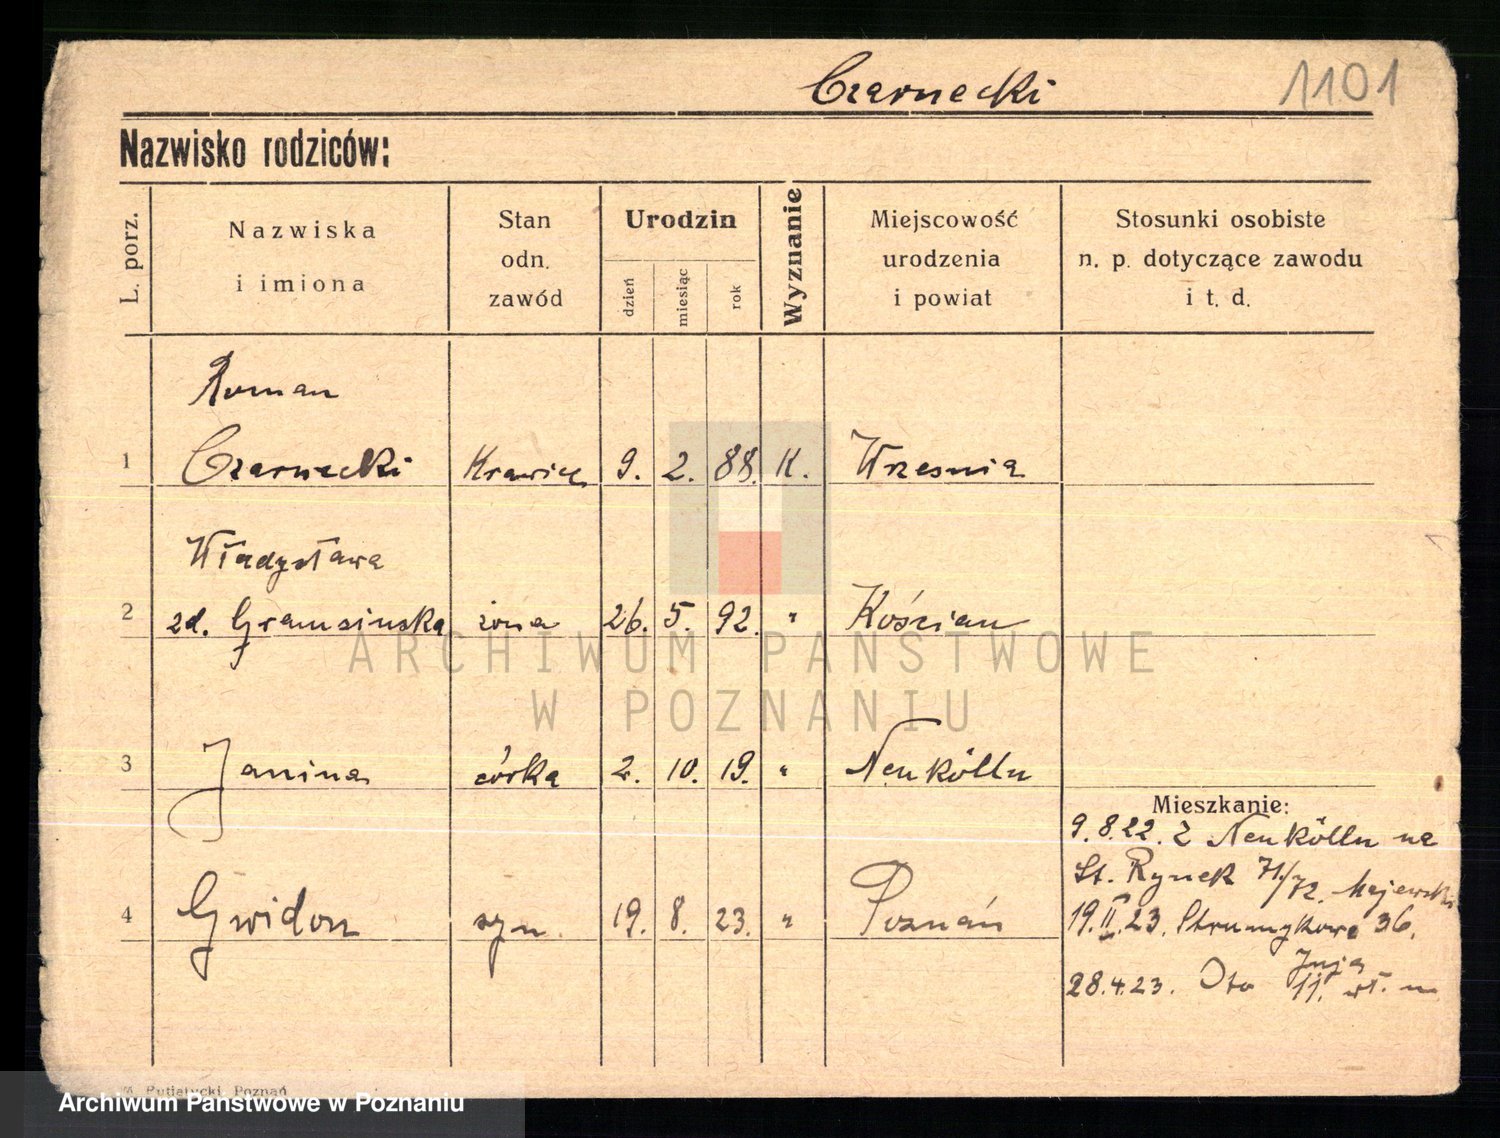 Czarnecki 1101
Nazwisko rodziców:
L. porz.
Nazwiska
i imiona
Stan
odn.
zawód
Urodzin
dzień
miesiąc
rok
Wyznanie
Miejscowość
urodzenia
i powiat
Stosunki osobiste
n. p. dotyczące zawodu
i t. d.
Roman
1 Czarnecki Krawiec 9. 2. 88. K. Wrzesnia
Władysława
2 zd. Gramsinska żona 26. 5. 92. " Kościan
3 Janina córka 2. 10. 19. " Neukölln
Mieszkanie:
9.8.22. Z Neukölln na
St. Rynek 71/72. Majewski
4 Gwidon syn. 19. 8. 23. " Poznań
19.II.23. Strumykowa 36.
28.4.23. 11. m
ARCHIWUM PAŃSTWOWE
W POZNANIU
Putiatycki, Poznań
Archiwum Państwowe w Poznaniu